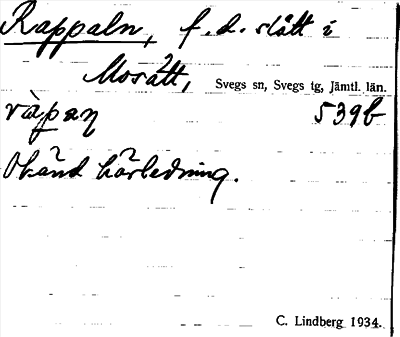 Rappaln, f.d. slått i
Mosätt, Svegs sn, Svegs tg, Jämtl. län.
ràpaɳ 539b
Okänd härledning.
C. Lindberg 1934.